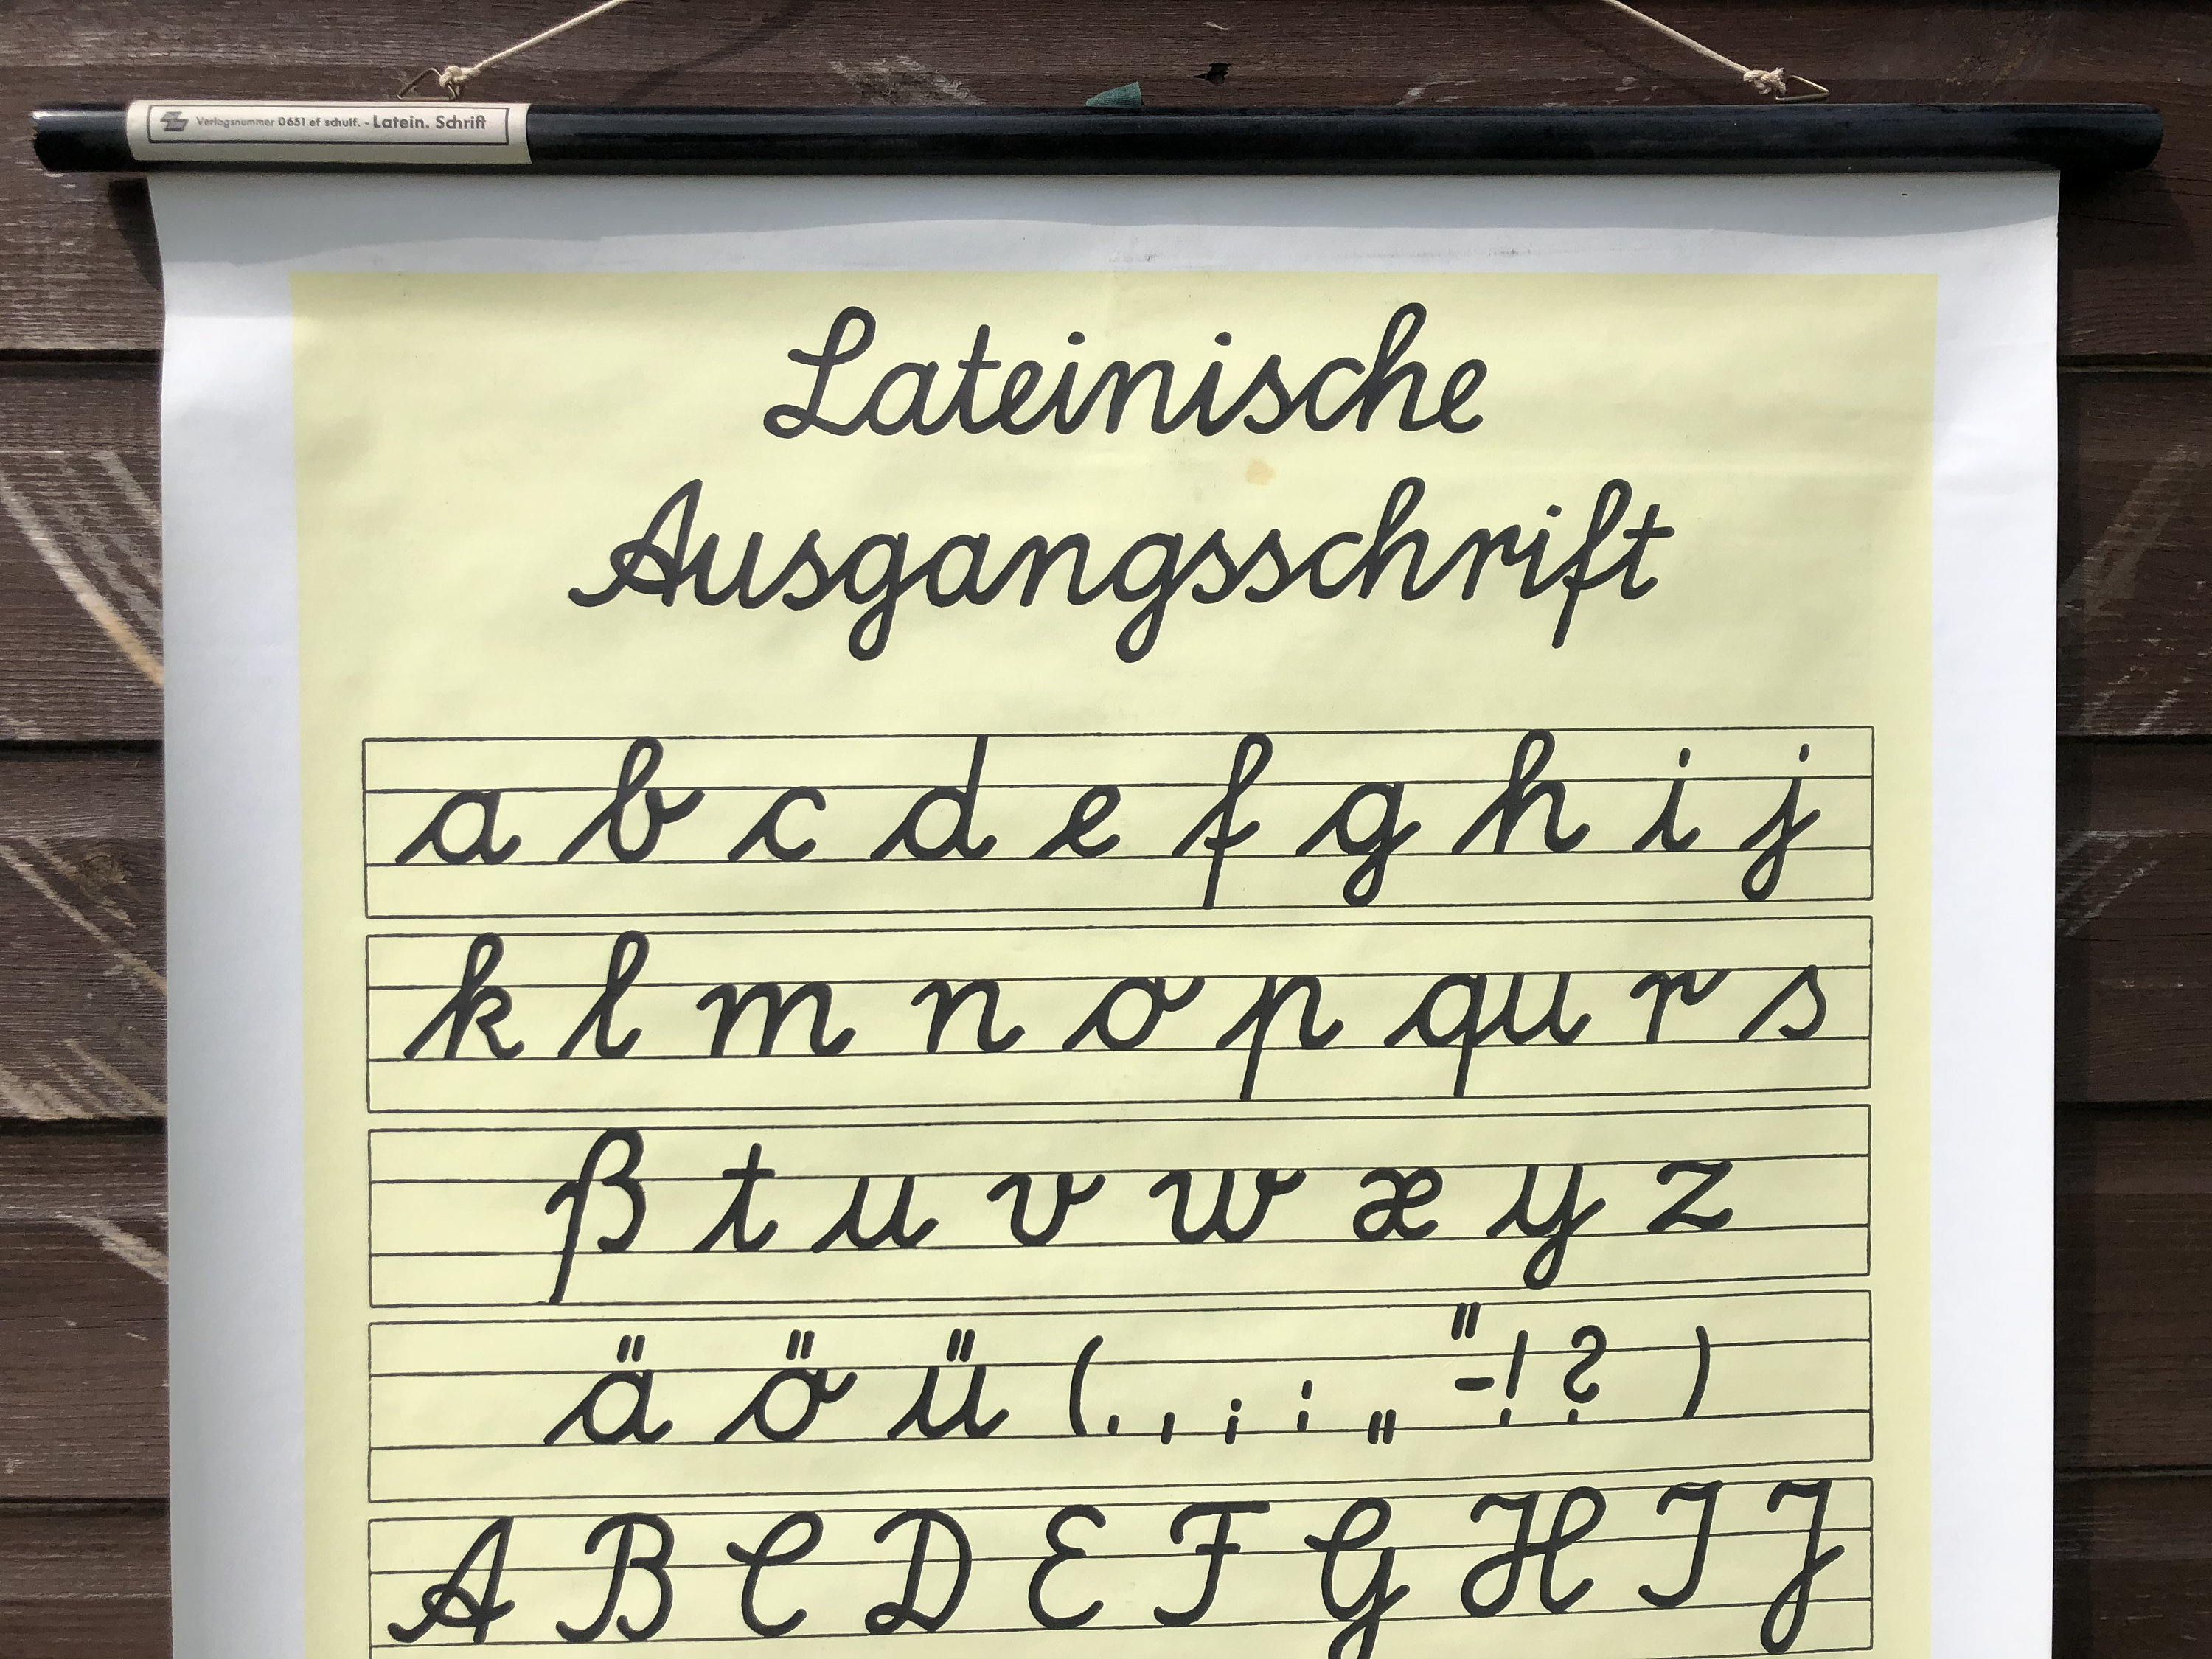 Verlagsnummer 0651 ef schulf. - Latein. Schrift
Lateinische
Ausgangsschrift
a b c d e f g h i j
k l m n o p qu r s
ß t u v w x y z
ä ö ü ( . , ; : „ " - ! ? )
A B C D E F G H I J